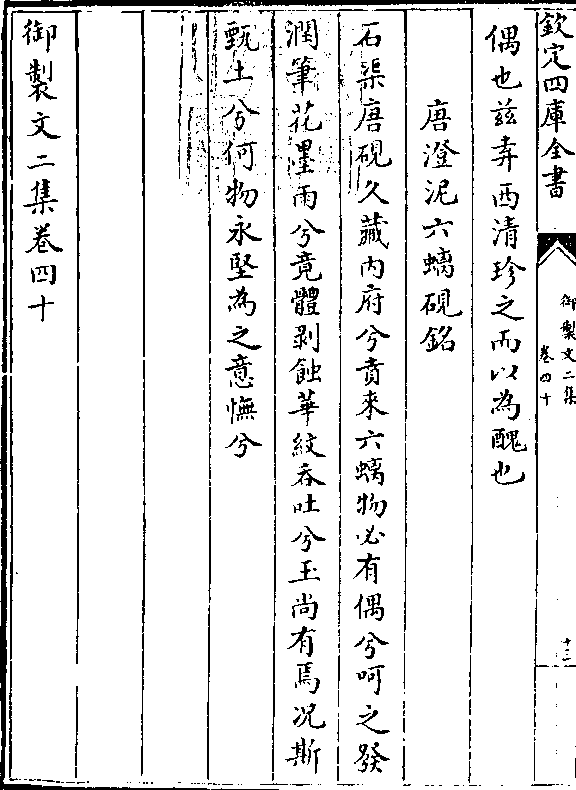 欽定四庫全書
御製文二集
卷四十
十三
偶也兹弆西清珍之而以為醜也
唐澄泥六螭硯銘
石渠唐硯久藏内府兮賁來六螭物必有偶兮呵之發
潤筆花墨雨兮竟體剥蝕華紋吞吐兮玉尚有焉况斯
甄土兮何物永堅為之意憮兮
御製文二集卷四十